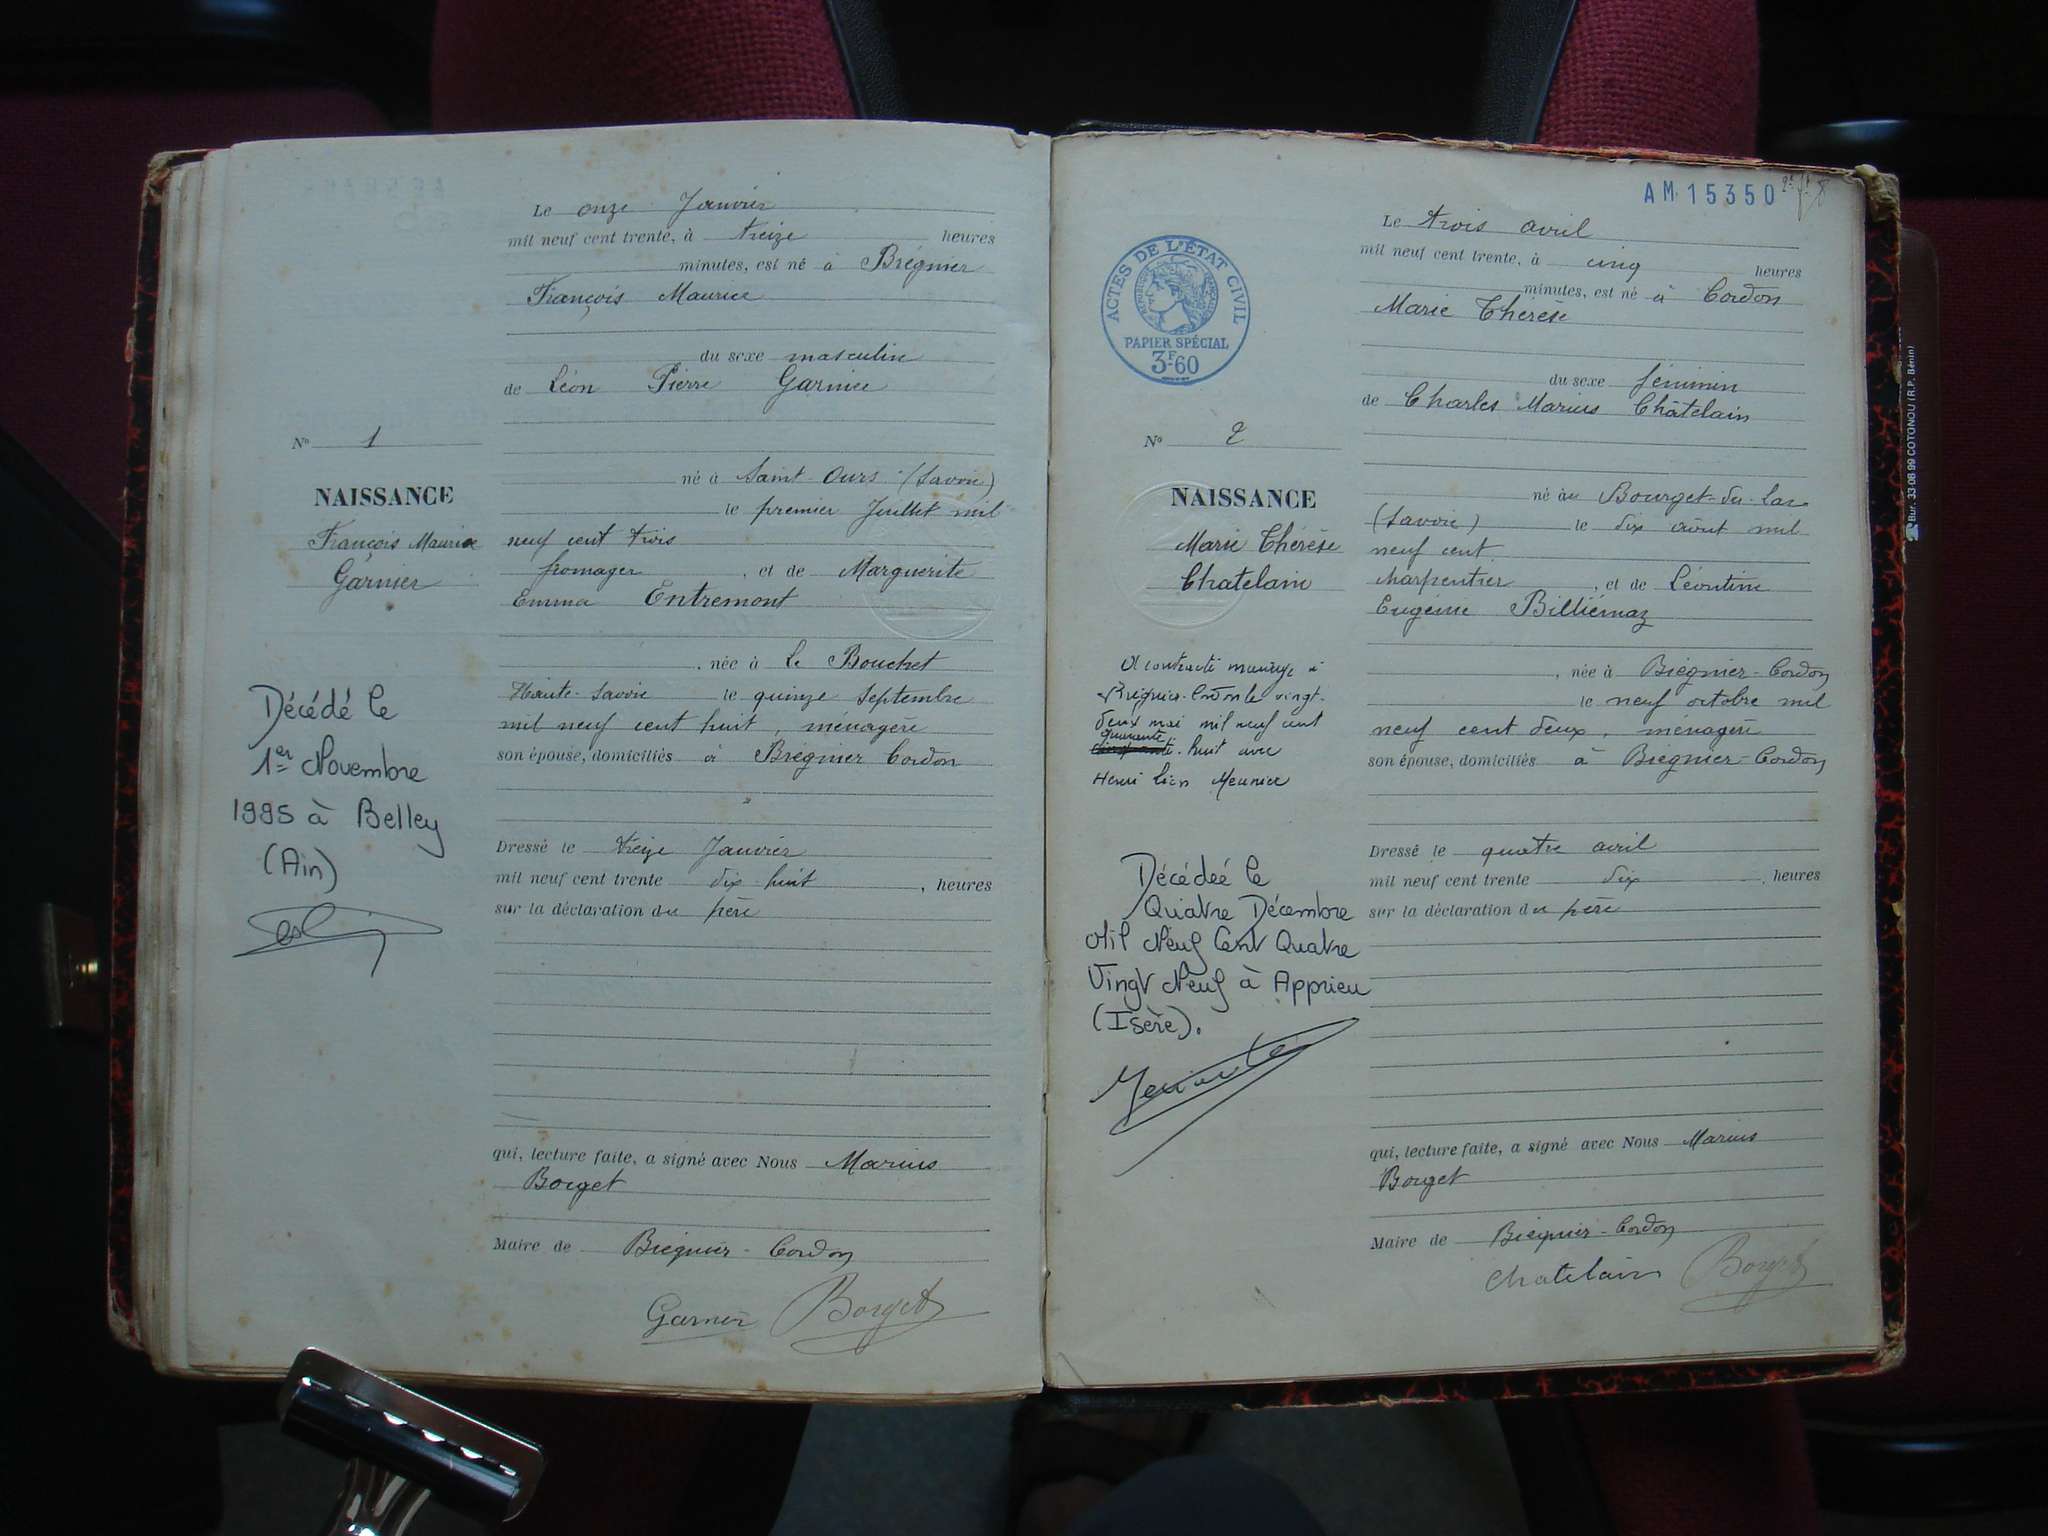 Le onze Janvier
mil neuf cent trente, à treize heures
minutes, est né à Brégnier
François Maurice
du sexe masculin
de Léon Pierre Garnier
né à Saint-Ours (Savoie)
le premier Juillet mil
neuf cent trois
fromager, et de Marguerite
Emma Entremont
, née à Le Bouchet
Haute-Savoie le quinze Septembre
mil neuf cent huit, ménagère
son épouse, domiciliés à Brégnier Cordon
Dressé le treize Janvier
mil neuf cent trente dix huit, heures
sur la déclaration du père
qui, lecture faite, a signé avec Nous Marius
Borget
Maire de Brégnier-Cordon
Garnier Borget
No 1
NAISSANCE
François Maurice
Garnier
Décédé le
1er Novembre
1995 à Belley
(Ain)
AM 15350
ACTES DE L'ÉTAT CIVIL
PAPIER SPÉCIAL
3F60
No 2
NAISSANCE
Marie Thérèse
Chatelain
A contracté mariage à
Brégnier-Cordon le vingt-
deux mai mil neuf cent
quarante
huit avec
Henri Léon Meunier
Décédée le
Quatre Décembre
Mil Neuf Cent Quatre
Vingt Neuf à Apprieu
(Isère).
Le trois avril
mil neuf cent trente, à cinq heures
minutes, est né à Cordon
Marie Thérèse
du sexe féminin
de Charles Marius Châtelain
né au Bourget-du-Lac
(Savoie) le dix août mil
neuf cent
charpentier, et de Léontine
Eugénie Billiémaz
, née à Brégnier-Cordon
le neuf octobre mil
neuf cent deux, ménagère
son épouse, domiciliés à Brégnier-Cordon
Dressé le quatre avril
mil neuf cent trente dix, heures
sur la déclaration du père
qui, lecture faite, a signé avec Nous Marius
Borget
Maire de Brégnier-Cordon
Chatelain Borget
Bur. 33 08 99 COTONOU (R.P. Bénin)